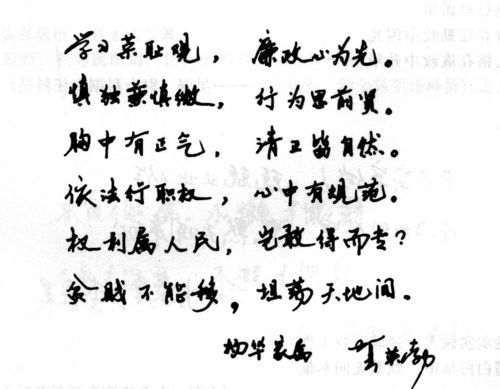 学习荣耻观，廉政心为先。
慎独兼慎微，行为思前贤。
胸中有正气，清正皆自然。
依法行职权，心中有规范。
权利属人民，岂敢得而专？
贫贱不能移，坦荡天地间。